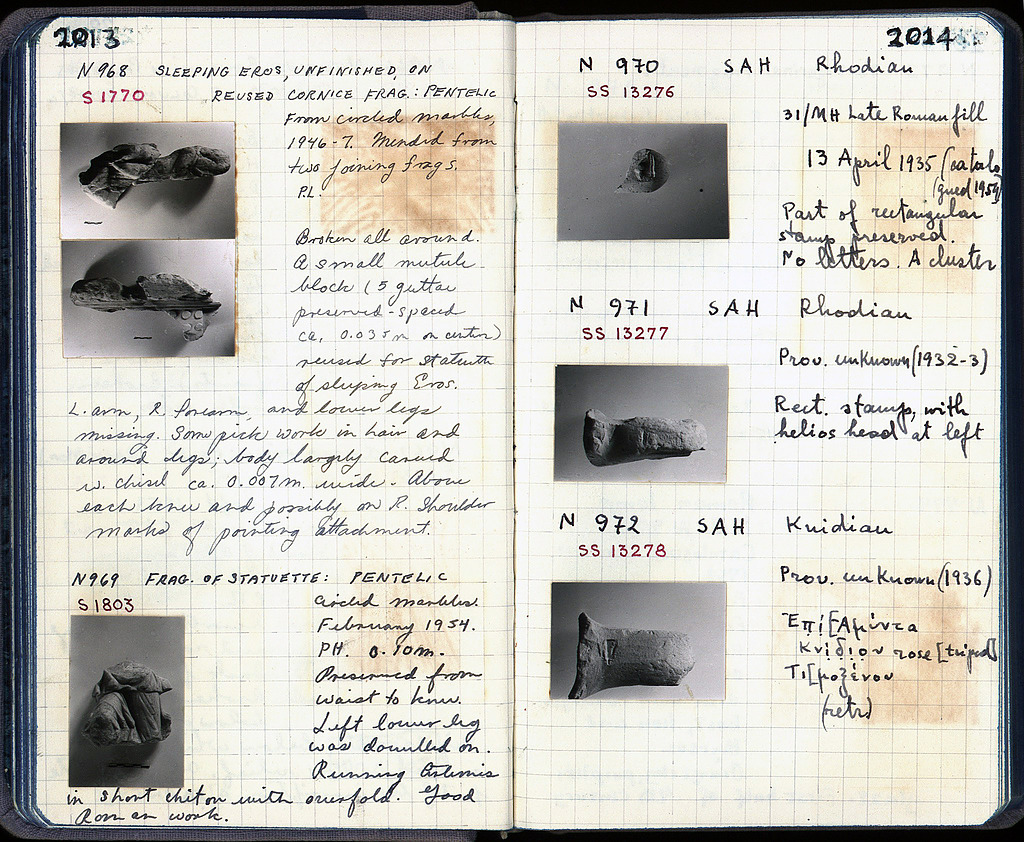 2013
N 968 SLEEPING EROS, UNFINISHED, ON
S 1770 REUSED CORNICE FRAG.: PENTELIC
From circled marbles,
1946-7. Mended from
two joining frags.
P.L.
Broken all around.
A small mutule
block (5 guttae
preserved - spaced
ca. 0.035 m on centers)
reused for statuette
of sleeping Eros.
L. arm, R. forearm, and lower legs
missing. Some pick work in hair and
around legs; body largely carved
w. chisel ca. 0.007 m. wide. Above
each knee and possibly on R. Shoulder
marks of pointing attachment.
N 969 FRAG. OF STATUETTE: PENTELIC
S 1803
Circled marbles.
February 1954.
PH. 0.10m.
Preserved from
waist to knee.
Left lower leg
was dowelled on.
Running Artemis
in short chiton with overfold. Good
Roman work.
2014
N 970 SAH Rhodian
SS 13276
31/MH Late Roman fill
13 April 1935 (catalo
gued 1959)
Part of rectangular
stamp preserved.
No letters. A cluster
N 971 SAH Rhodian
SS 13277
Prov. unknown (1932-3)
Rect. stamp, with
helios head at left
N 972 SAH Knidian
SS 13278
Prov. unknown (1936)
Ἐπὶ [Ἀμύντα
Κνίδιον rose [tripod]
Τι[μοξένου
(retr)